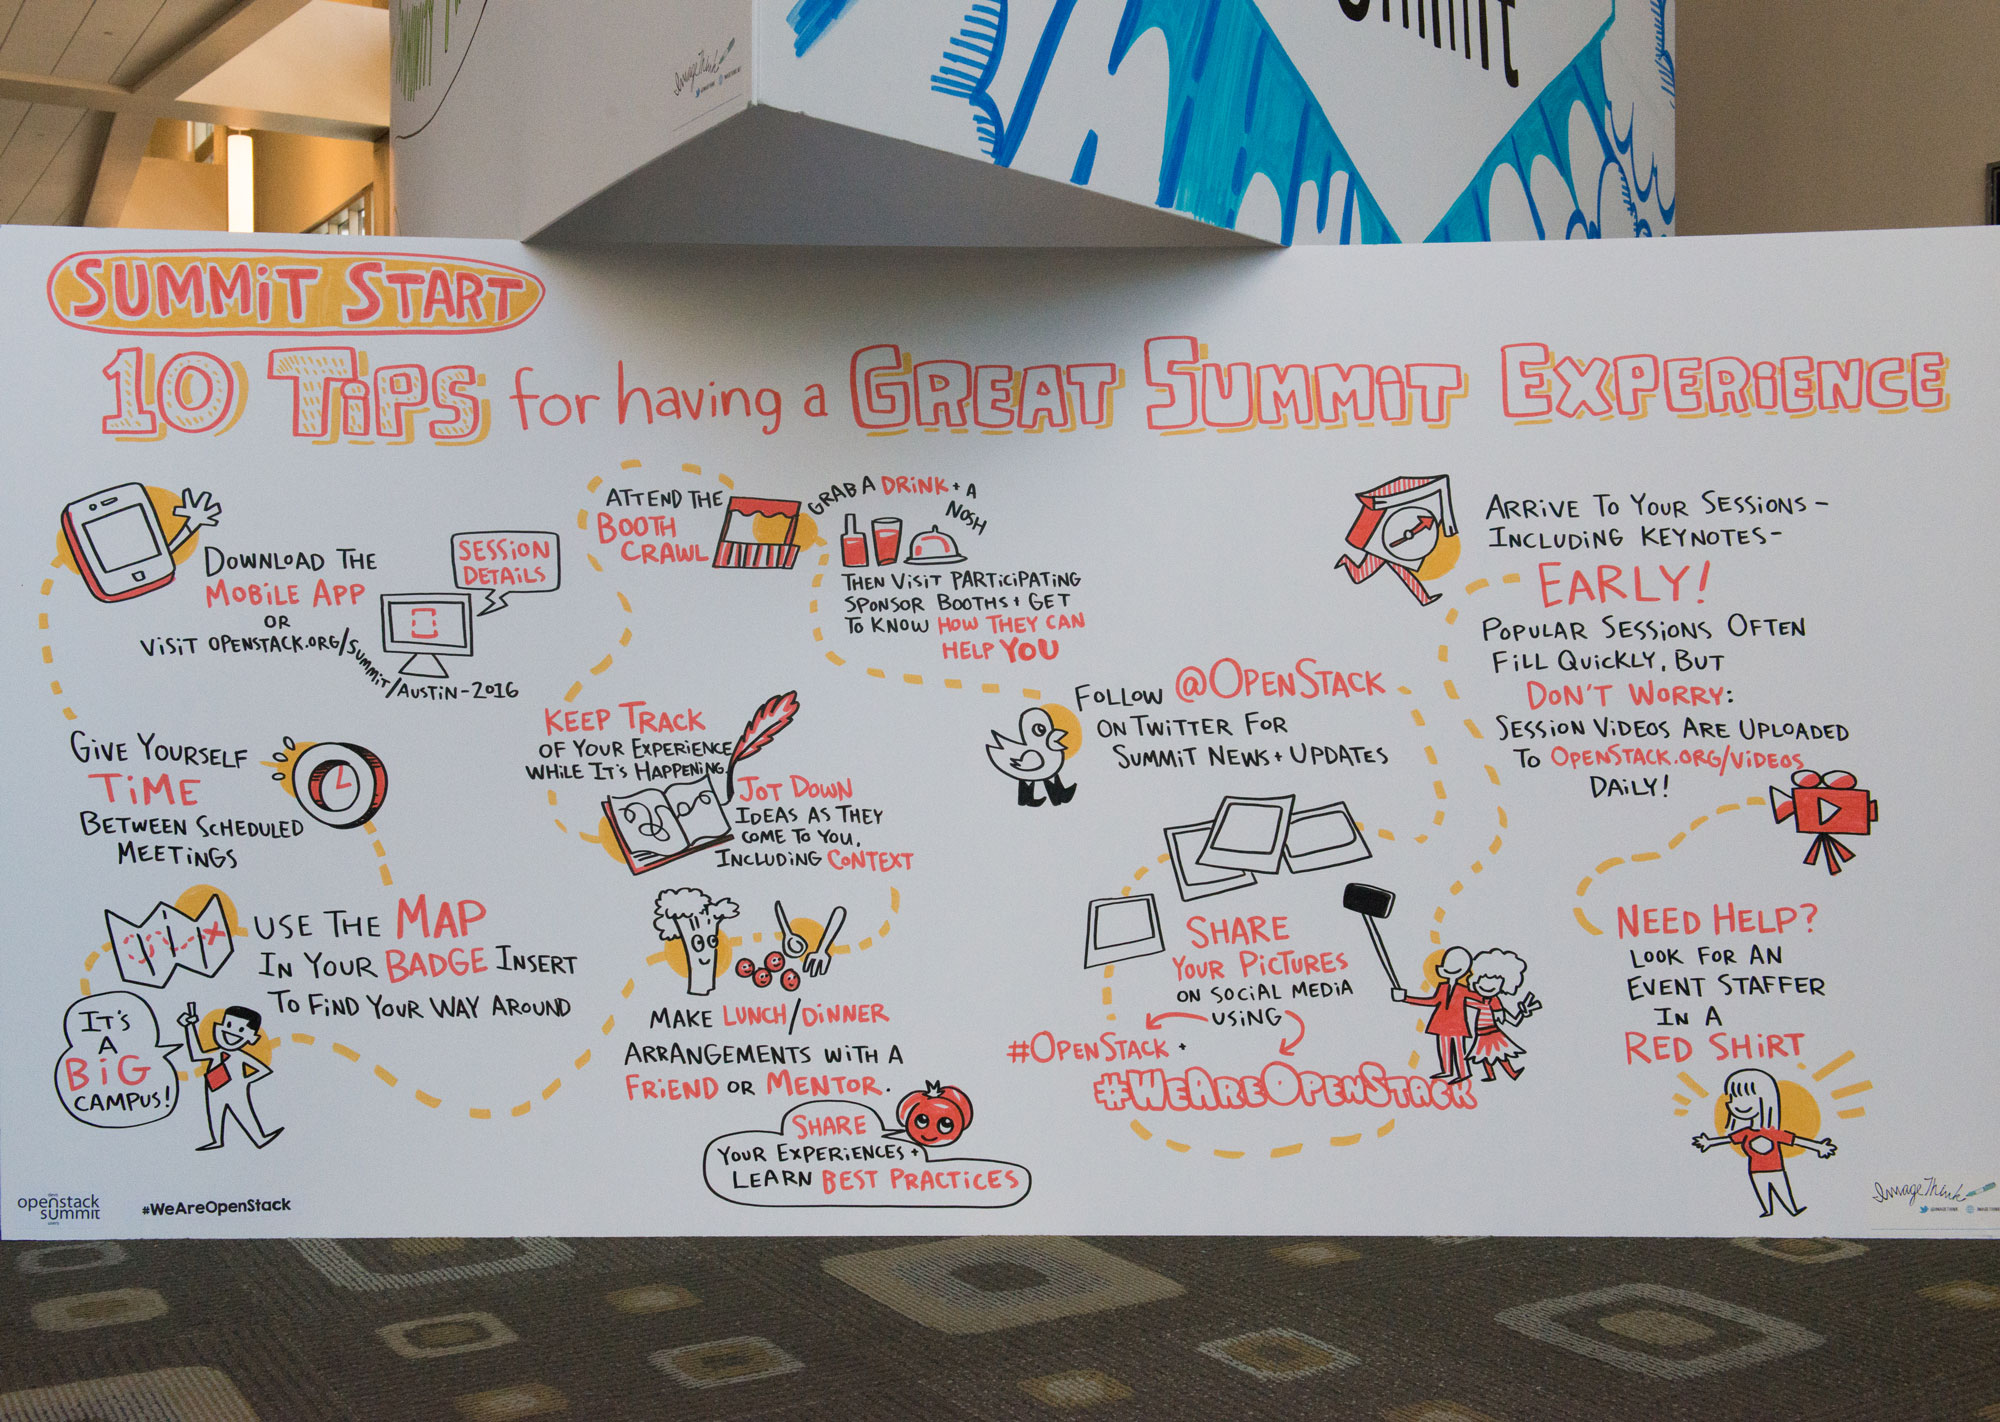 ummit
ImageThink
SUMMiT START
10 TiPS for having a GREAT SUMMiT EXPERiENCE
DOWNLOAD THE
MOBILE APP
OR
ViSiT OPENSTACK.ORG/SUMMiT/AUSTiN-2016
SESSiON
DETAiLS
GiVE YOURSELF
TiME
BETWEEN SCHEDULED
MEETiNGS
USE THE MAP
IN YOUR BADGE INSERT
TO FiND YOUR WAY AROUND
IT'S
A
BiG
CAMPUS!
ATTEND THE
BOOTH
CRAWL
GRAB A DRiNK + A
NOSH
THEN ViSiT PARTiCiPATiNG
SPONSOR BOOTHS + GET
TO KNOW HOW THEY CAN
HELP YOU
KEEP TRACK
OF YOUR EXPERiENCE
WHiLE IT'S HAPPENiNG.
JOT DOWN
IDEAS AS THEY
COME TO YOU,
INCLUDiNG CONTEXT
MAKE LUNCH/DiNNER
ARRANGEMENTS WiTH A
FRiEND OR MENTOR.
SHARE
YOUR EXPERiENCES +
LEARN BEST PRACTiCES
FOLLOW @OPENSTACK
ON TWiTTER FOR
SUMMiT NEWS + UPDATES
SHARE
YOUR PiCTURES
ON SOCiAL MEDiA
USiNG
#OPENSTACK +
#WEAREOPENSTACK
ARRiVE TO YOUR SESSiONS -
INCLUDiNG KEYNOTES -
EARLY!
POPULAR SESSiONS OFTEN
FiLL QUiCKLY, BUT
DON'T WORRY:
SESSiON ViDEOS ARE UPLOADED
TO OPENSTACK.ORG/ViDEOS
DAiLY!
NEED HELP?
LOOK FOR AN
EVENT STAFFER
IN A
RED SHiRT
openstack
summit
#WeAreOpenStack
ImageThink